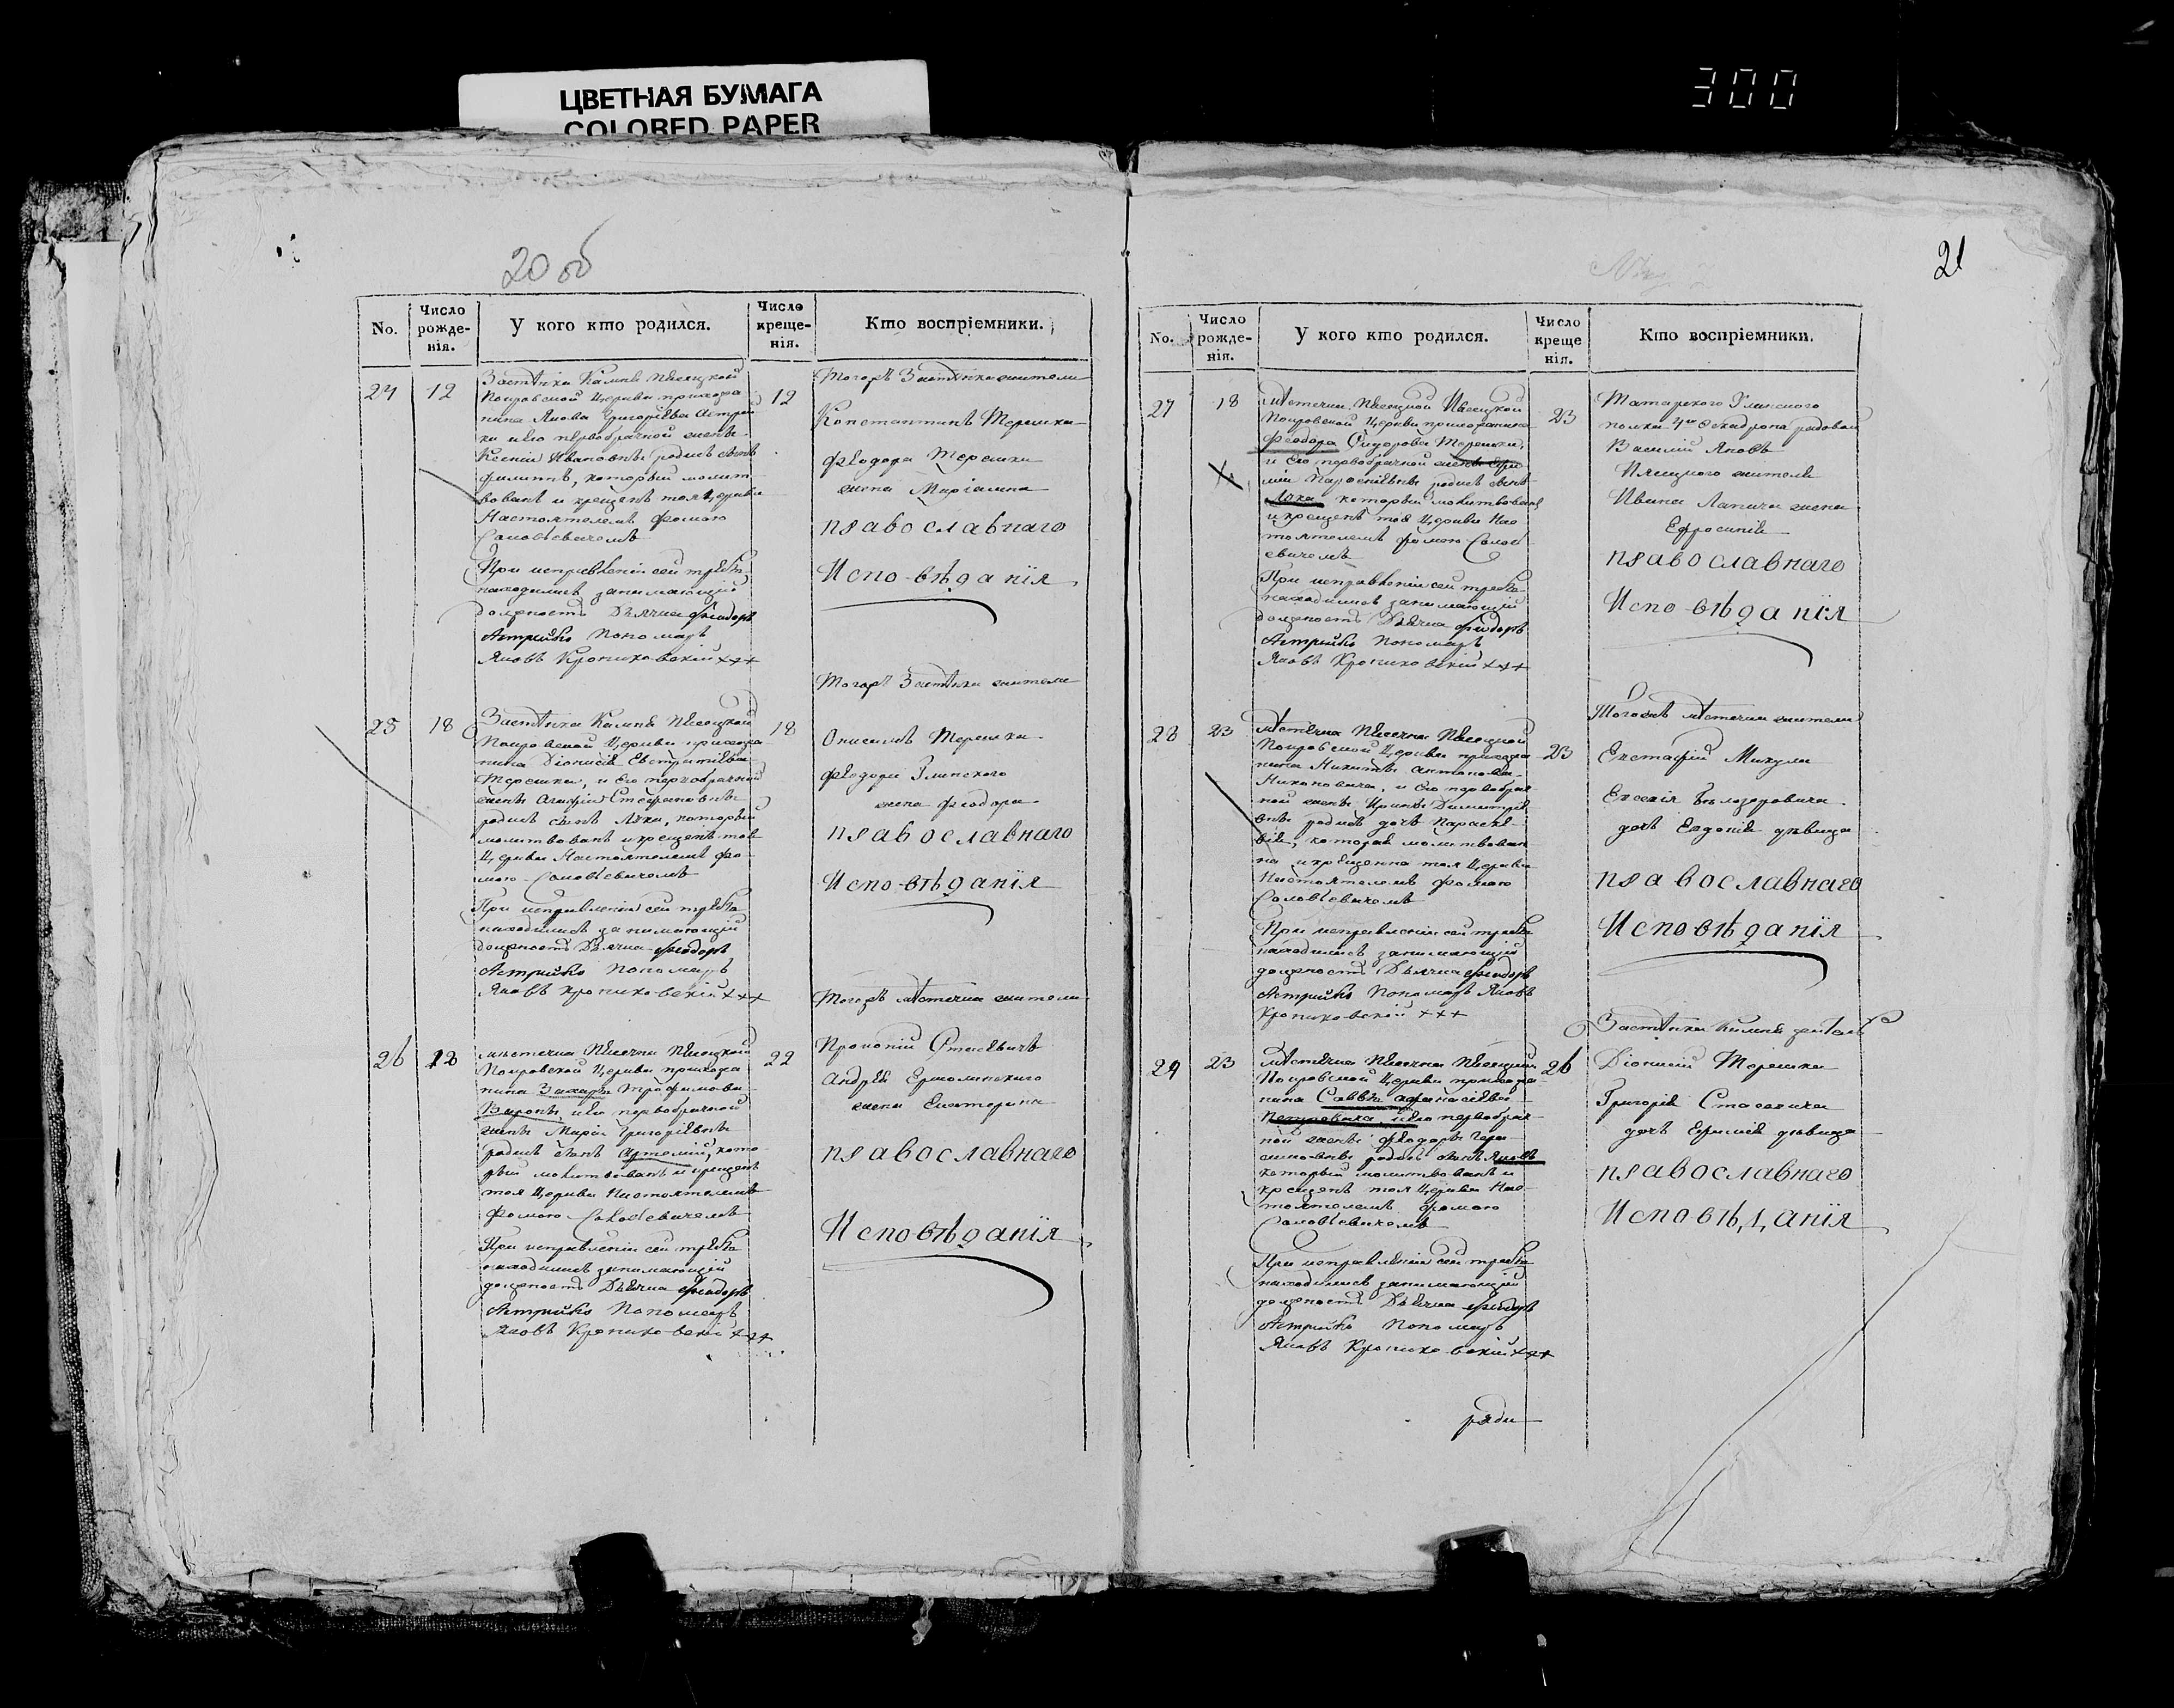 ЦВЕТНАЯ БУМАГА
COLORED PAPER
300
20 об
No.
Число рожде-нія.
У кого кто родился.
Число креще-нія.
Кто воспріемники.
24
12
Застѣнка Камня Пясецкой
Покровской Церкви прихожа
нина Якова Григоріева Астрей
ки и его первобрачной жены
Ксеніи Ивановны родися сынъ
Филиппъ, который молит
вованъ и крещенъ тоя Церкви
Настоятелемъ Фомою
Соловіевичемъ
При исправленіи сей требы
находились занимающій
должность Дьячка Феодоръ
Астрейко Пономарь
Яковъ Кропиховскій +++
12
Тогожъ Застѣнка жители
Константинъ Терешка
Феодора Терешки
жена Маріанна
православнаго
Исповѣданія
25
18
Застѣнка Камня Пясецкой
Покровской Церкви прихожа
нина Діонисія Евстратіева
Терешки, и его первобрачной
жены Агафіи Стефановны
родися сынъ Лука, который
молитвованъ и крещенъ тоя
Церкви Настоятелемъ Фо-
мою Соловіевичемъ
При исправленіи сей требы
находились занимающій
должность Дьячка Феодоръ
Астрейко Пономарь
Яковъ Кропиховскій +++
18
Тогожъ Застѣнка жители
Онисимъ Терешка
Феодора Глинского
жена Феодора
православнаго
Исповѣданія
26
18
мѣстечка Пясечна Пясецкой
Покровской Церкви прихожа
нина Захарія Трофимова
Вароны, и его первобрачной
жены Маріи Григоріевны
родися сынъ Артемій, кото
рый молитвованъ и крещенъ
тоя Церкви Настоятелемъ
Фомою Соловіевичемъ
При исправленіи сей требы
находились занимающій
должность Дьячка Феодоръ
Астрейко Пономарь
Яковъ Кропиховскій +++
22
Тогожъ мѣстечка жители
Прокопій Стасевичъ
Андрея Ермолинского
жена Екатерина
православнаго
Исповѣданія
21
No.
Число рожде-нія.
У кого кто родился.
Число креще нія.
Кто воспріемники.
27
18
мѣстечка Пясечной Пясецкой
Покровской Церкви прихожанина
Феодора Сидорова Терешки,
и его первобрачной жены
родися сынъ
Лука который молитвованъ
и крещенъ тоя Церкви Нас
тоятелемъ Фомою Солов
евичемъ
При исправленіи сей требы
находились занимающій
должность Дьячка Феодоръ
Астрейко Пономарь
Яковъ Кропиховскій +++
23
Татарского Уланского
полка 4го Эскадрона рядовой
Василій Яковъ
Пясецкого жителя
Ивана Лапича жена
Ефросинія
православнаго
Исповѣданія
28
23
мѣстечка Пясечна Пясецкой
Покровской Церкви прихожа
нина Никиты Антонова
и его первобрач
ной жены Ирины Димитріе
вны родися дочь Параске-
вія, которая молитвован
на и крещенна тоя Церкви
Настоятелемъ Фомою
Соловіевичемъ
При исправленіи сей требы
находились занимающій
должность Дьячка Феодоръ
Астрейко Пономарь Яковъ
Кропиховскій +++
23
Тогожъ мѣстечка жители
Евстафій Микула
Евсевія Бѣлозоровича
дочь Евдокія дѣвица
православнаго
Исповѣданія
29
23
мѣстечка Пясечна Пясецкой
Покровской Церкви прихожа-
нина Саввы Афанасіева
Петровича, и его первобрач
ной жены Феодоры Гера-
симовны родися сынъ Яковъ
который молитвованъ и
крещенъ тоя Церкви Нас
тоятелемъ Фомою
Соловіевичемъ
При исправленіи сей требы
находились занимающій
должность Дьячка Феодоръ
Астрейко Пономарь
Яковъ Кропиховскій +++
26
Застѣнка Камня житель
Діонисій Терешка
Григорія Стасевича
дочь Ефимія дѣвица
православнаго
Исповѣданія
ряди